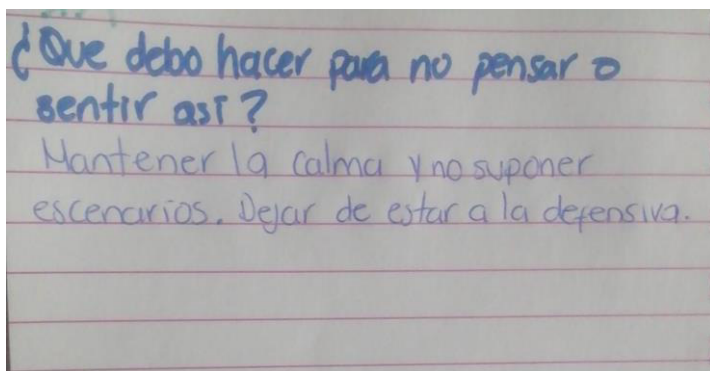 ¿Que debo hacer para no pensar o
sentir así?
Mantener la calma y no suponer
escenarios. Dejar de estar a la defensiva.